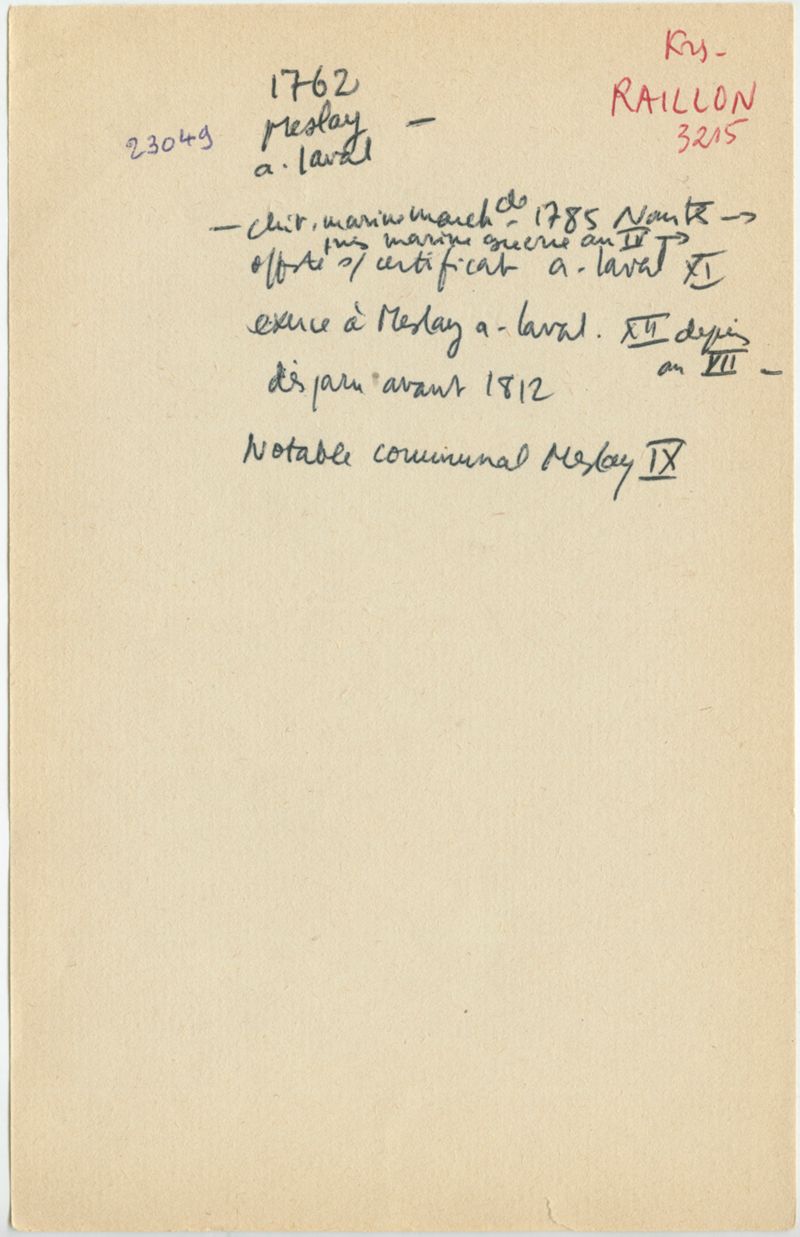 RAILLON
3215
1762
Meslay —
23049
a. laval
— chir. marine march de 1785 Nantes →
puis marine guerre an IV →
s/ certificat a. laval XI
exerce à Meslay a. laval. XII depuis
an VII —
disparu avant 1812
Notable communal Meslay IX